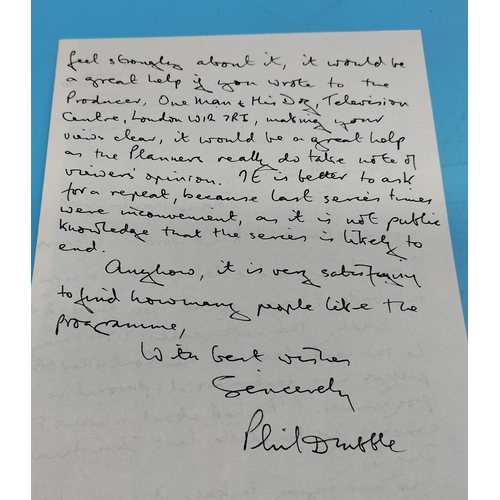 feel strongly about it, it would be
a great help if you wrote to the
Producer, One Man & His Dog, Television
Centre, London W12 7RJ, making your
views clear, it would be a great help
as the Planners really do take note of
viewers' opinion. It is better to ask
for a repeat, because last series times
were inconvenient, as it is not public
knowledge that the series is likely to
end.
Anyhow, it is very satisfying
to find how many people like the
programme,
With best wishes
Sincerely
Phil Drabble